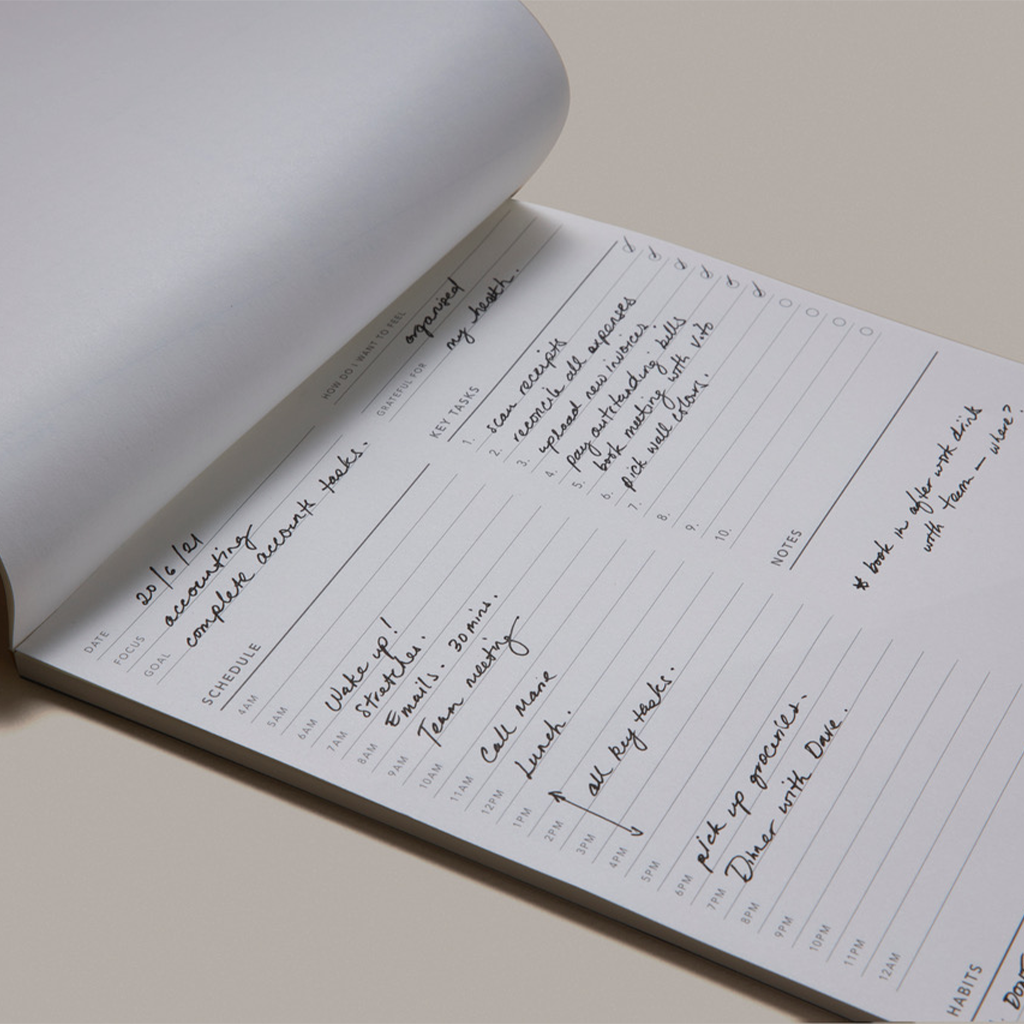 DATE 20/6/21
FOCUS accounting
GOAL complete accounts tasks.
HOW DO I WANT TO FEEL organised
GRATEFUL FOR my health.
SCHEDULE
4AM
5AM
6AM Wake up!
7AM Stretches.
8AM Emails. 30 mins.
9AM Team meeting
10AM
11AM Call Marie
12PM Lunch.
1PM
2PM all key tasks.
3PM
4PM
5PM
6PM pick up groceries.
7PM Dinner with Dave.
8PM
9PM
10PM
11PM
12AM
KEY TASKS
1. scan receipts
2. reconcile all expenses
3. upload new invoices
4. pay outstanding bills
5. book meeting with Vito
6. pick wall colours.
7.
8.
9.
10.
NOTES
* book in after work drink
with team – where?
HABITS